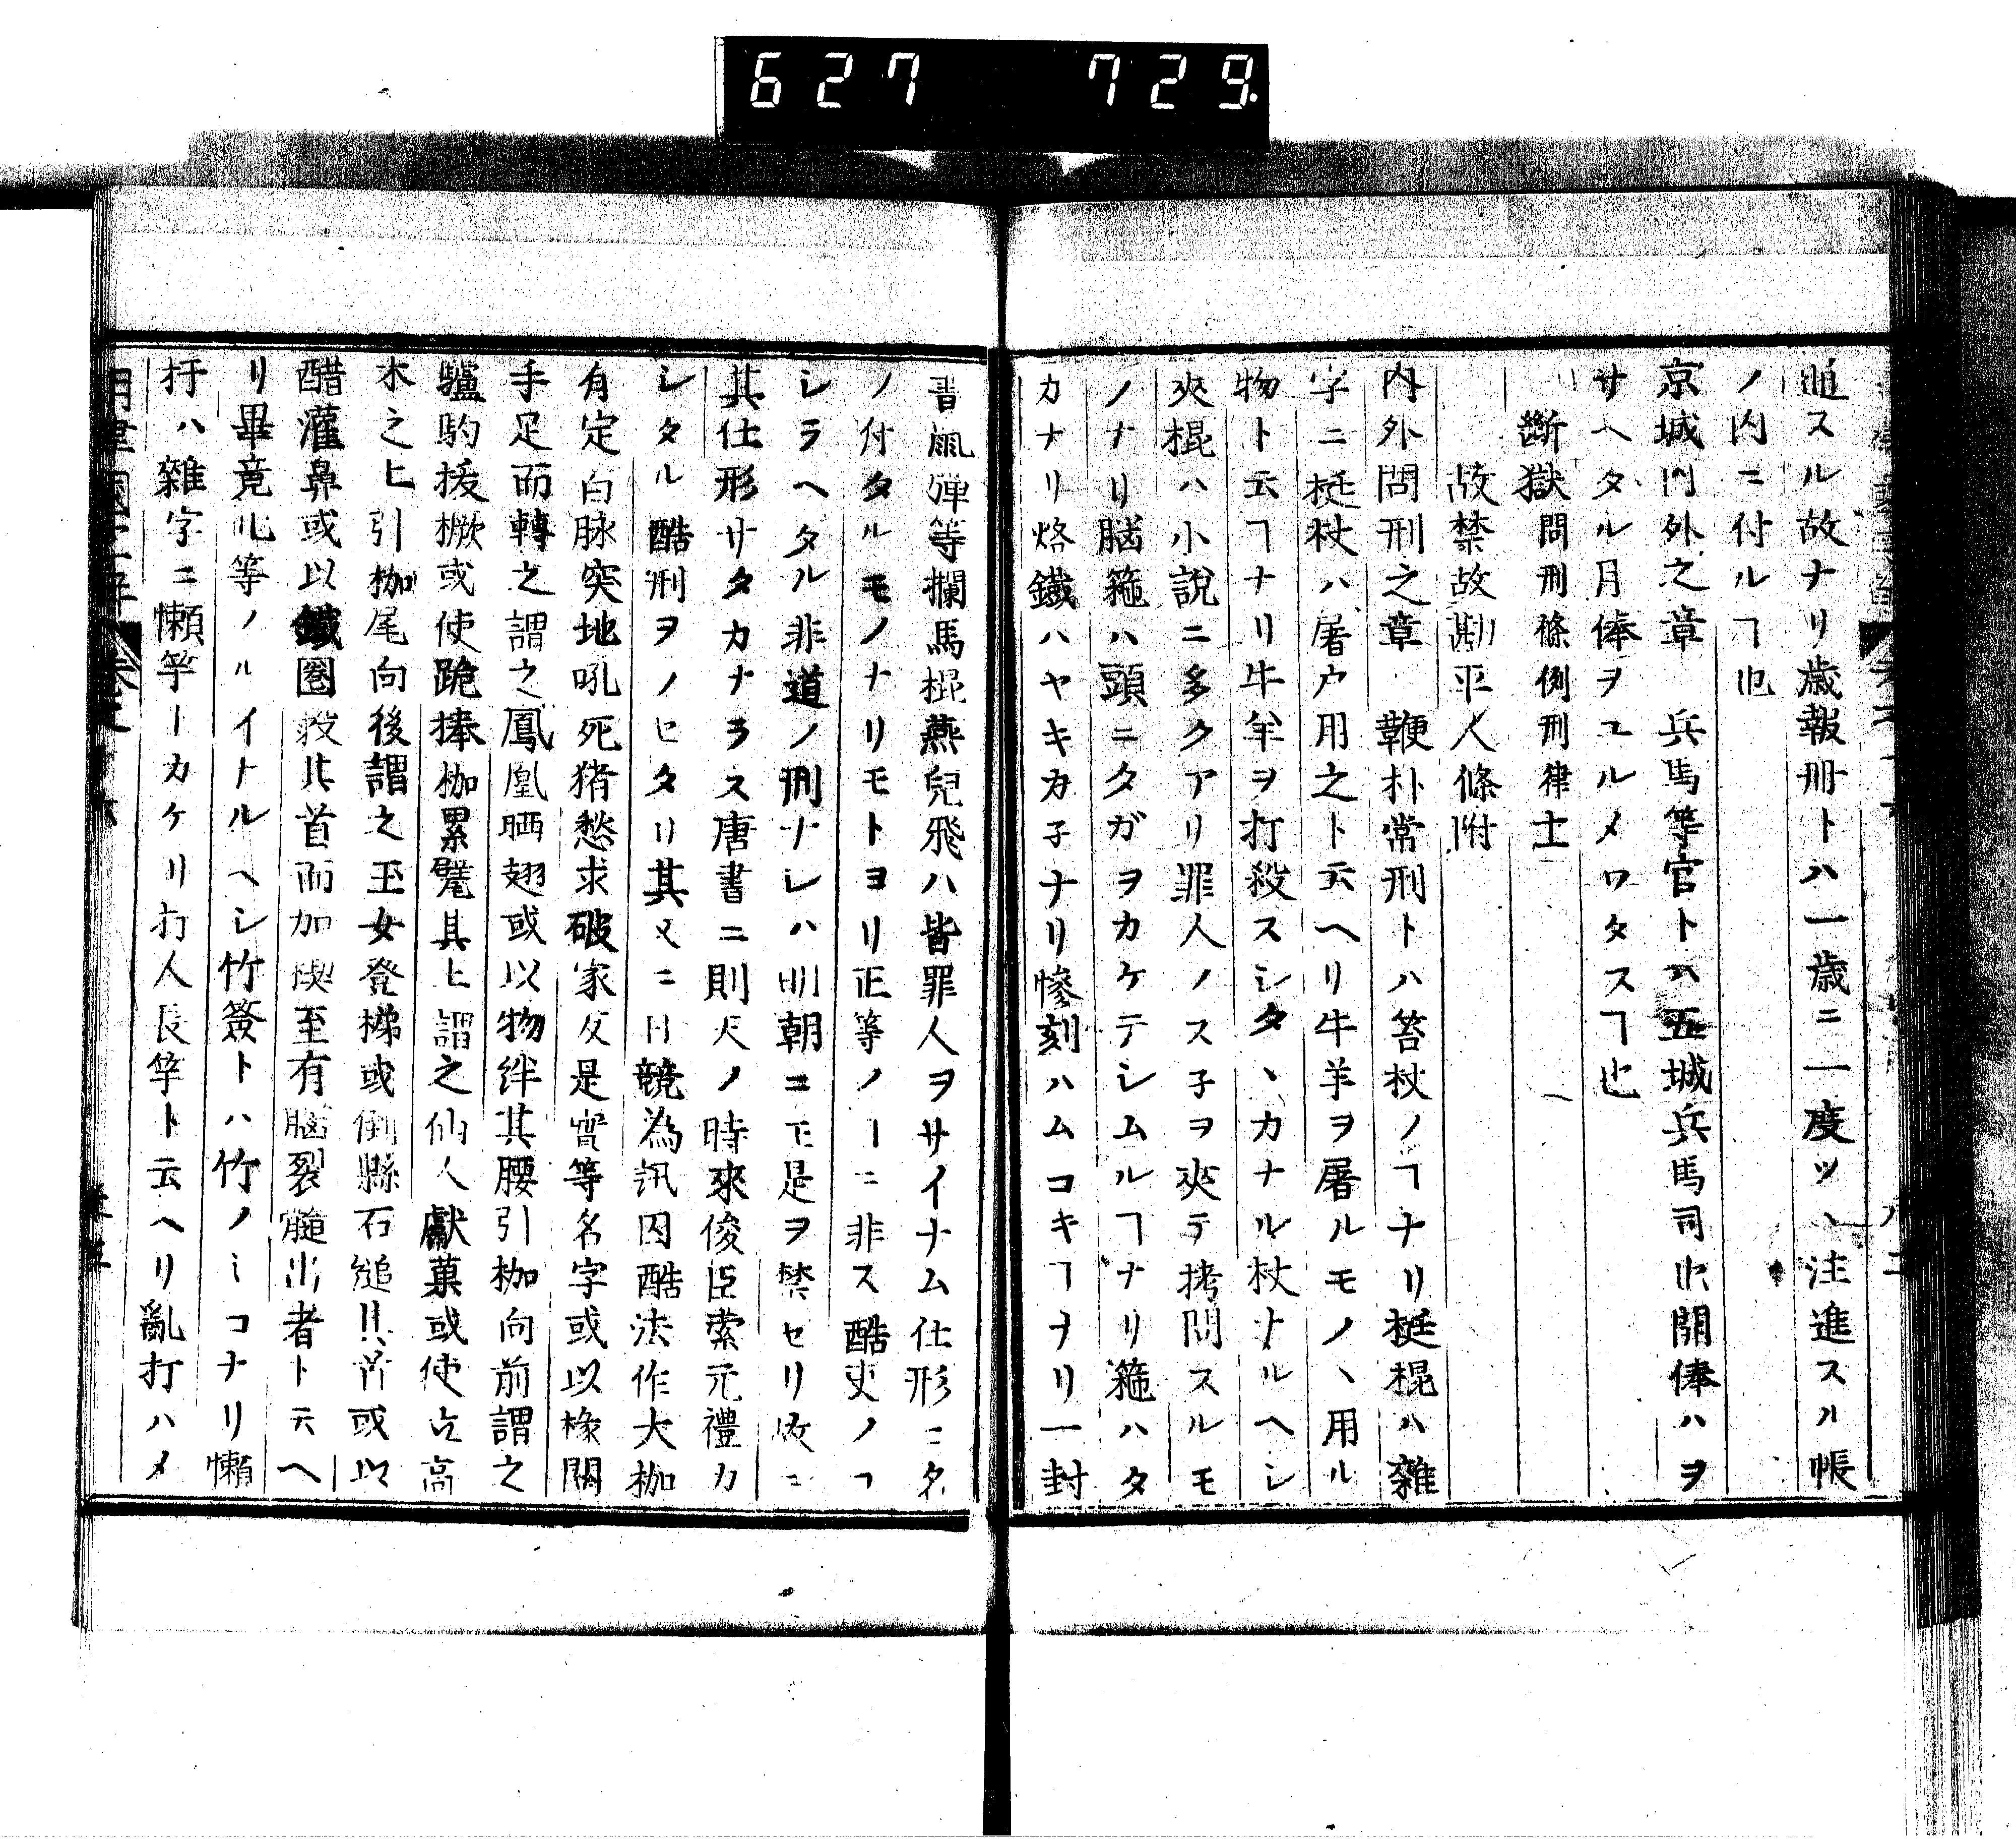 627 729
スル故ナリ歳報冊トハ一歳ニ一度ツヽ注進スル帳
ノ内ニ付ルヿ也
京城門外之章 兵馬等官トハ五城兵馬司也開俸ハヲ
サヘタル月俸ヲユルメワタスヿ也
斷獄問刑條例刑律十
故禁故勘平人條附
内外問刑之章 鞭朴常刑トハ笞杖ノヿナリ梃棍ハ雜
字ニ梃杖ハ屠户用之ト云ヘリ牛羊ヲ屠ルモノヽ用ル
物ト云ヿナリ牛羊ヲ打殺スシタヽカナル杖ナルヘシ
夾棍ハ小說ニ多クアリ罪人ノスネヲ夾テ拷問スルモ
ノナリ脳箍ハ頭ニタガヲカケテシムルヿナリ箍ハタ
カナリ烙鐵ハヤキカネナリ慘刻ハムコキヿナリ一封
書鼠弾等攔馬棍燕兒飛ハ皆罪人ヲサイナム仕形ニ名
ノ付タルモノナリモトヨリ正等ノヿニ非ス酷吏ノコ
シラヘタル非道ノ刑ナレハ明朝ニモ是ヲ禁セリ故ニ
其仕形サタカナラス唐書ニ則天ノ時來俊臣索元禮カ
シタル酷刑ヲノセタリ其文ニ曰競為訊囚酷法作大枷
有定百脉突地吼死猪愁求破家反是實等名字或以椽關
手足而轉之謂之鳳凰晒翅或以物絆其腰引枷向前謂之
驢駒拔橛或使跪捧枷累甓其上謂之仙人獻菓或使立高
木之上引枷尾向後謂之玉女登梯或倒縣石縋其首或以
醋灌鼻或以鐵圏其首而加楔至有腦裂髓出者ト云ヘ
リ畢竟此等ノルイトルヘシ竹簽トハ竹ノミコナリ懶
扞ハ雜字ニ懶竿ーカケリ打人長竿ト云ヘリ亂打ハメ